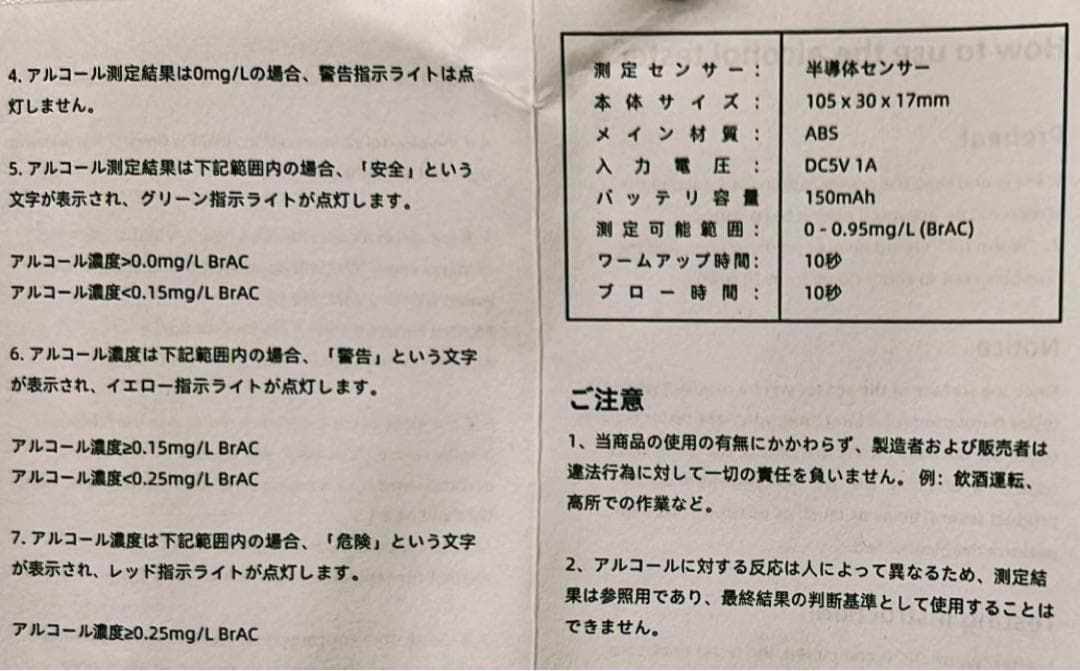 4. アルコール測定結果は0mg/Lの場合、警告指示ライトは点
灯しません。
5. アルコール測定結果は下記範囲内の場合、「安全」という
文字が表示され、グリーン指示ライトが点灯します。
アルコール濃度>0.0mg/L BrAC
アルコール濃度<0.15mg/L BrAC
6. アルコール濃度は下記範囲内の場合、「警告」という文字
が表示され、イエロー指示ライトが点灯します。
アルコール濃度≥0.15mg/L BrAC
アルコール濃度<0.25mg/L BrAC
7. アルコール濃度は下記範囲内の場合、「危険」という文字
が表示され、レッド指示ライトが点灯します。
アルコール濃度≥0.25mg/L BrAC
測定センサー： 半導体センサー
本体サイズ： 105 x 30 x 17mm
メイン材質： ABS
入力電圧： DC5V 1A
バッテリ容量 150mAh
測定可能範囲： 0 - 0.95mg/L (BrAC)
ワームアップ時間： 10秒
ブロー時間： 10秒
ご注意
1、当商品の使用の有無にかかわらず、製造者および販売者は
違法行為に対して一切の責任を負いません。例：飲酒運転、
高所での作業など。
2、アルコールに対する反応は人によって異なるため、測定結
果は参照用であり、最終結果の判断基準として使用することは
できません。